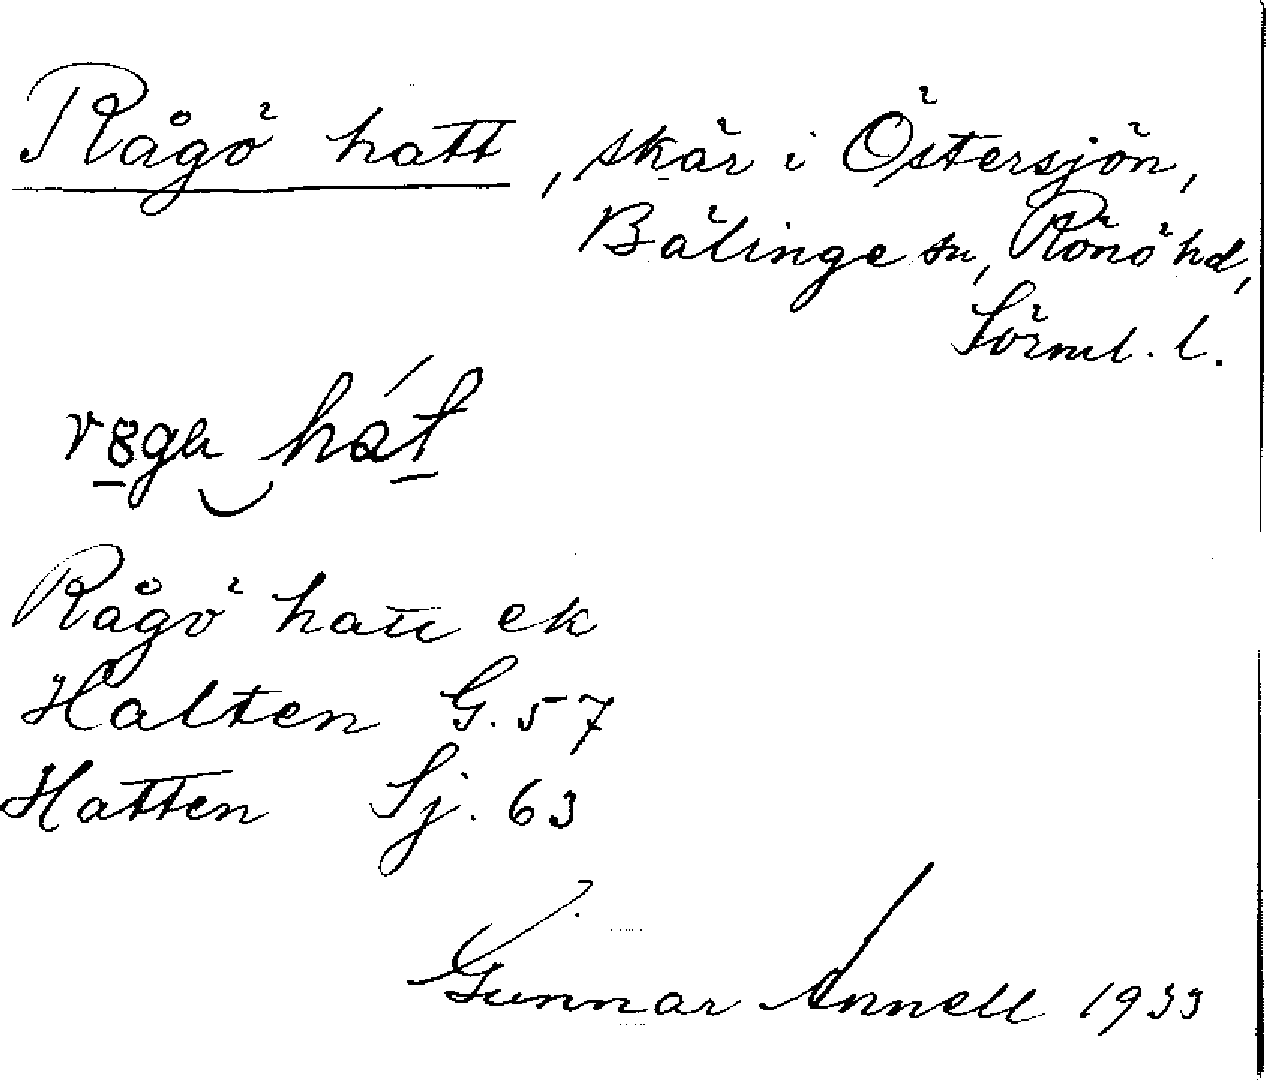 Rågö hatt, skär i Östersjön,
Bälinge sn, Rönö hd,
Sörml. l.
Rågö hatt ek
Halten G. 57
Hatten Sj. 63
Gunnar Annell 1933